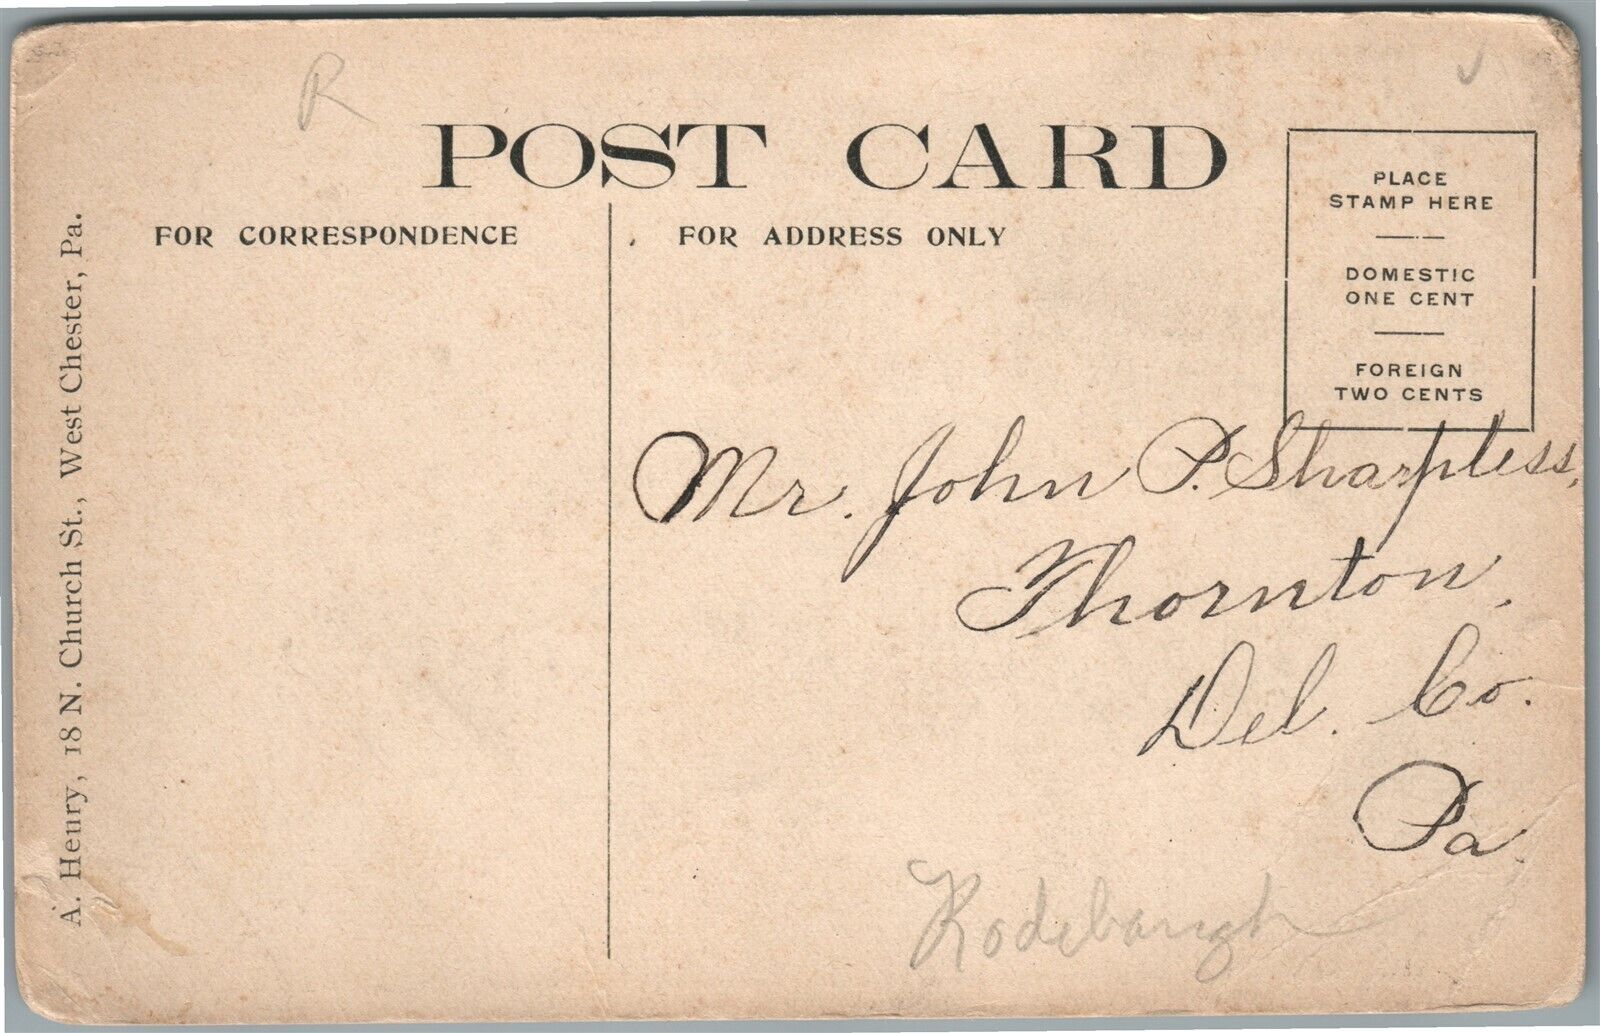 R
POST CARD
FOR CORRESPONDENCE
FOR ADDRESS ONLY
PLACE
STAMP HERE
DOMESTIC
ONE CENT
FOREIGN
TWO CENTS
A. Henry, 18 N. Church St., West Chester, Pa.
Mr. John P. Sharpless,
Thornton,
Del. Co.
Pa.
Rodebaugh